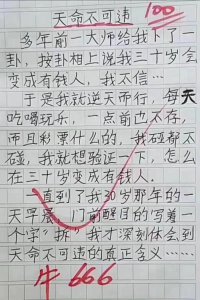 天命不可违
100
多年前一大师给我卜了一
卦，按卦相上说我三十岁会
变成有钱人，我不信…
于是我就逆天而行，每天
吃喝玩乐，一点前也不存，
而且彩票什么的，我碰都不
碰，我就想验证一下，怎么
在三十岁变成有钱人。
一直到了我30岁那年的一
天早晨，门前醒目的写着一
个字“拆”我才深刻体会到
天命不可违的真正含义……
牛666